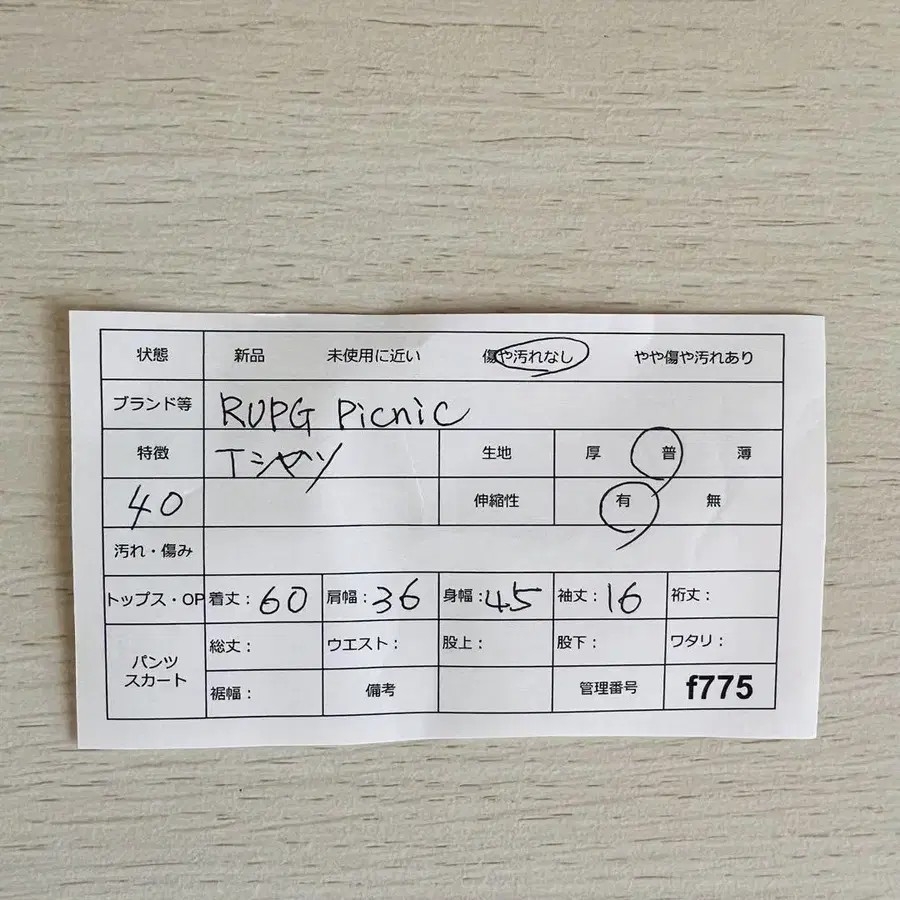 状態 新品 未使用に近い 傷や汚れなし やや傷や汚れあり
ブランド等 RUPG Picnic
特徴 Tシャツ 生地 厚 普 薄
40 伸縮性 有 無
汚れ・傷み
トップス・OP 着丈：60 肩幅：36 身幅：45 袖丈：16 裄丈：
パンツ スカート 総丈： ウエスト： 股上： 股下： ワタリ：
裾幅： 備考 管理番号 f775